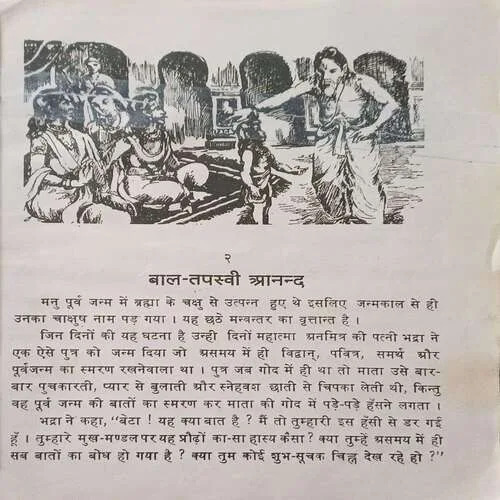 २
बाल-तपस्वी आनन्द
मनु पूर्व जन्म में ब्रह्मा के चक्षु से उत्पन्न हुए थे इसलिए जन्मकाल से ही
उनका चाक्षुष नाम पड़ गया । यह छठे मन्वन्तर का वृत्तान्त है ।
जिन दिनों की यह घटना है उन्ही दिनों महात्मा अनमित्र की पत्नी भद्रा ने
एक ऐसे पुत्र को जन्म दिया जो असमय में ही विद्वान्, पवित्र, समर्थ और
पूर्वजन्म का स्मरण रखनेवाला था । पुत्र जब गोद में ही था तो माता उसे बार-
बार पुचकारती, प्यार से बुलाती और स्नेहवश छाती से चिपका लेती थी, किन्तु
वह पूर्व जन्म की बातों का स्मरण कर माता की गोद में पड़े-पड़े हँसने लगता ।
भद्रा ने कहा, "बेटा ! यह क्या बात है ? मैं तो तुम्हारी इस हँसी से डर गई
हूँ । तुम्हारे मुख-मण्डल पर यह प्रौढ़ों का-सा हास्य कैसा ? क्या तुम्हें असमय में ही
सब बातों का बोध हो गया है ? क्या तुम कोई शुभ-सूचक चिह्न देख रहे हो ?"